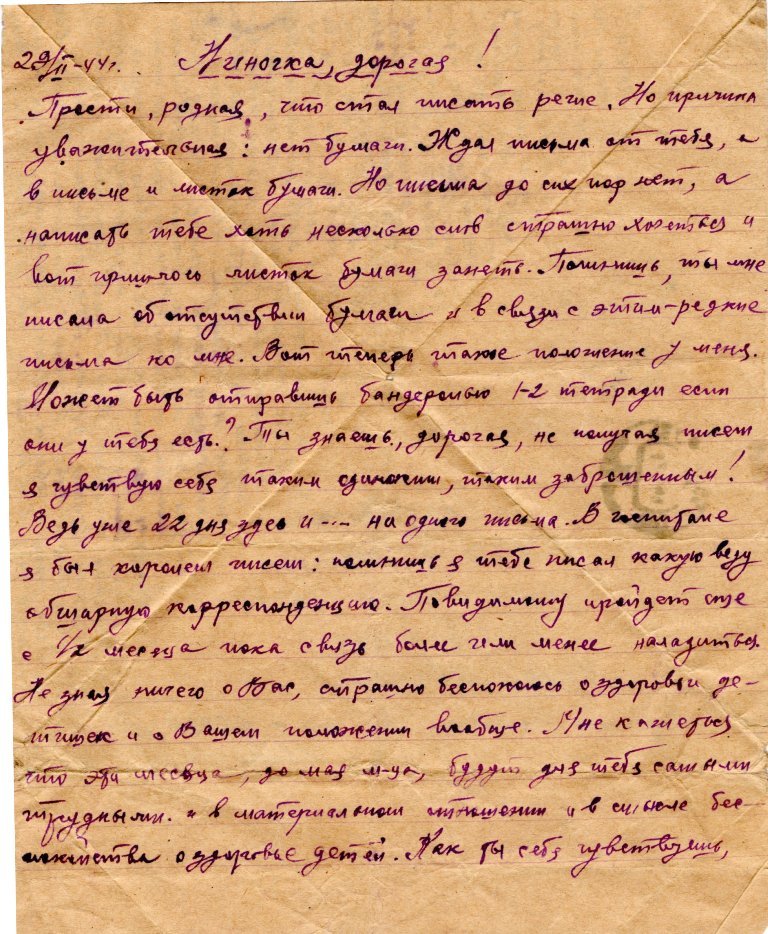 29/II-44г. Ниночка, дорогая!
Прости, родная, что стал писать реже. Но причина
уважительная: нет бумаги. Ждал письма от тебя, а
в письме и листок бумаги. Но письма до сих пор нет, а
написать тебе хоть несколько слов страшно хочеться и
вот пришлось листок бумаги занять. Помнишь, ты мне
писала об отсутствии бумаги и в связи с этим-редкие
письма ко мне. Вот теперь такое положение у меня.
Может быть отправишь бандеролью 1-2 тетради если
они у тебя есть? Ты знаешь, дорогая, не получая писем
я чувствую себя таким одиноким, таким заброшенным!
Ведь уже 22 дня здесь и --- ни одного письма. В госпитале
я был королем писем: помнишь я тебе писал какую веду
обширную корреспонденцию. Повидимому пройдет еще
с 1/2 месяца пока связь более или менее наладиться.
Не зная ничего о Вас, страшно беспокоюсь о здоровьи де-
тишек и о Вашем положении вообще. Мне кажеться
что эти месяца, до мая м-ца, будут для тебя самыми
трудными. и в материальном отношении и в смысле бес-
покойства о здоровье детей. Как ты себя чувствуешь,